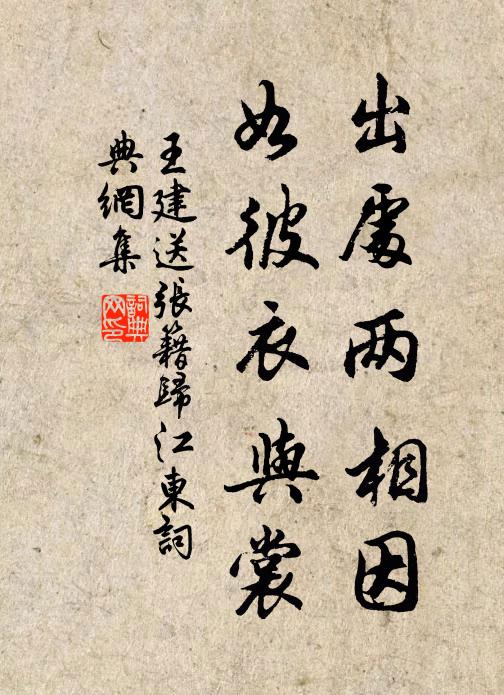 出處兩相因
如彼衣與裳
王建送張籍歸江東詞
典網集
詞典
网印